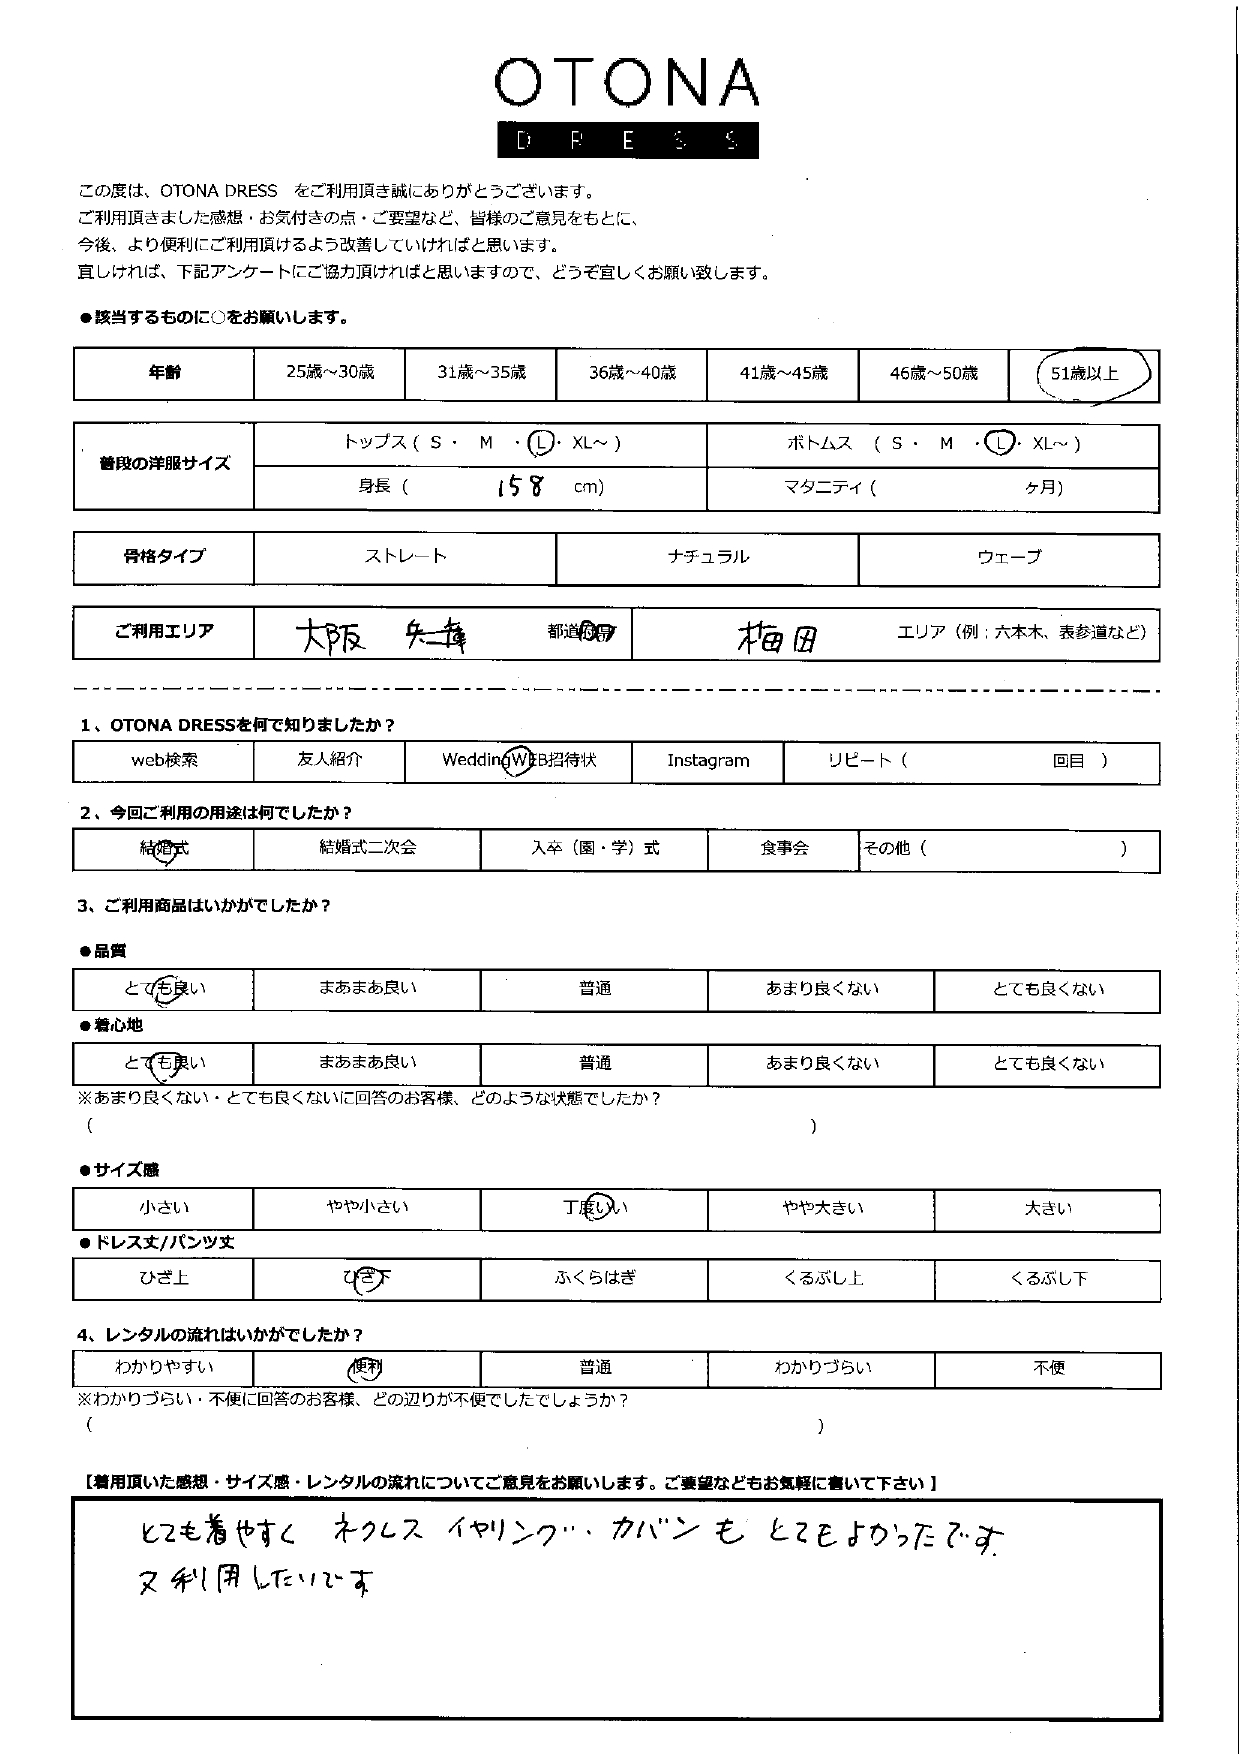 OTONA
DRESS
この度は、OTONA DRESS をご利用頂き誠にありがとうございます。
ご利用頂きました感想・お気付きの点・ご要望など、皆様のご意見をもとに、
今後、より便利にご利用頂けるよう改善していければと思います。
宜しければ、下記アンケートにご協力頂ければと思いますので、どうぞ宜しくお願い致します。
●該当するものに○をお願いします。
年齢 25歳～30歳 31歳～35歳 36歳～40歳 41歳～45歳 46歳～50歳 51歳以上
普段の洋服サイズ トップス ( S ・ M ・ L ・ XL～ ) ボトムス ( S ・ M ・ L ・ XL～ )
身長 ( 158 cm) マタニティ ( ヶ月)
骨格タイプ ストレート ナチュラル ウェーブ
ご利用エリア 大阪 兵庫 都道府県 梅田 エリア（例：六本木、表参道など）
1、OTONA DRESSを何で知りましたか？
web検索 友人紹介 WeddingWEB招待状 Instagram リピート（ 回目 ）
2、今回ご利用の用途は何でしたか？
結婚式 結婚式二次会 入卒（園・学）式 食事会 その他（ ）
3、ご利用商品はいかがでしたか？
●品質
とても良い まあまあ良い 普通 あまり良くない とても良くない
●着心地
とても良い まあまあ良い 普通 あまり良くない とても良くない
※あまり良くない・とても良くないに回答のお客様、どのような状態でしたか？
( )
●サイズ感
小さい やや小さい 丁度いい やや大きい 大きい
●ドレス丈/パンツ丈
ひざ上 ひざ下 ふくらはぎ くるぶし上 くるぶし下
4、レンタルの流れはいかがでしたか？
わかりやすい 便利 普通 わかりづらい 不便
※わかりづらい・不便に回答のお客様、どの辺りが不便でしたでしょうか？
( )
【着用頂いた感想・サイズ感・レンタルの流れについてご意見をお願いします。ご要望などもお気軽に書いて下さい】
とても着やすく ネクレス イヤリング… カバンも とてもよかったです.
又利用したいです